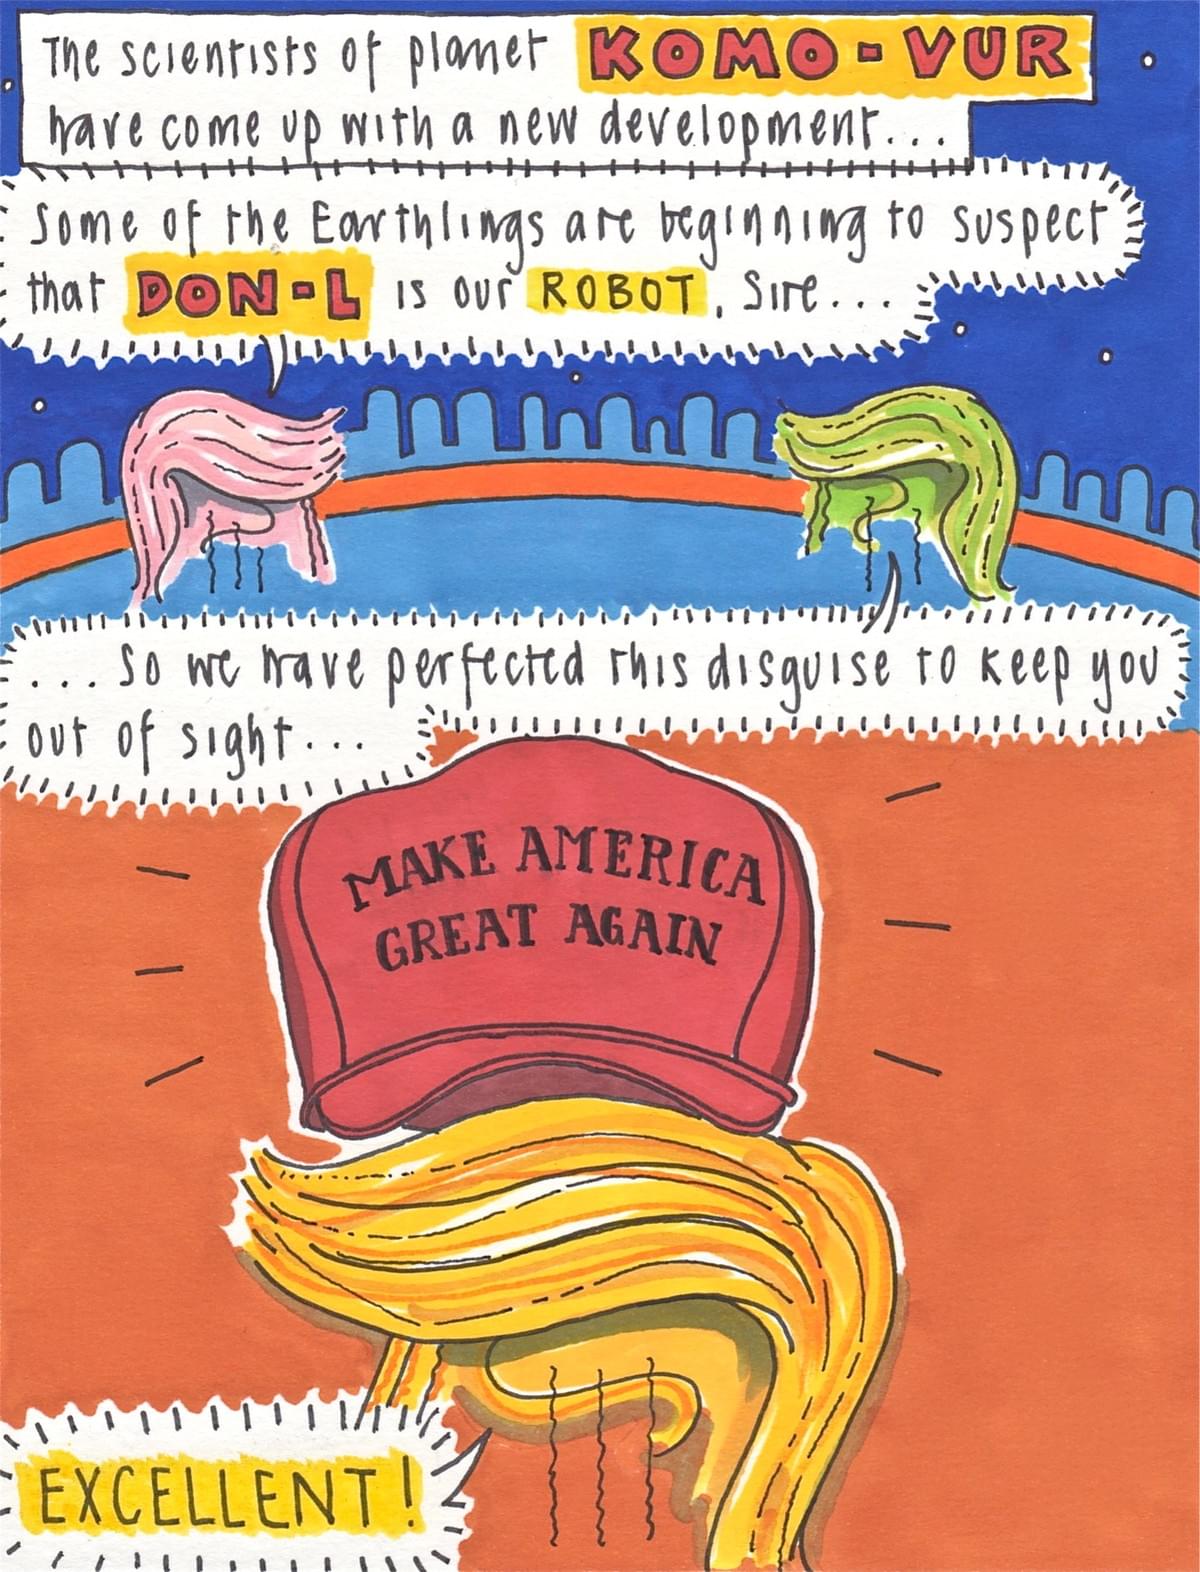 The scientists of planet KOMO-VUR
have come up with a new development...
Some of the Earthlings are beginning to suspect
that DON-L is our ROBOT, Sire...
...So we have perfected this disguise to keep you
out of sight...
MAKE AMERICA
GREAT AGAIN
EXCELLENT!